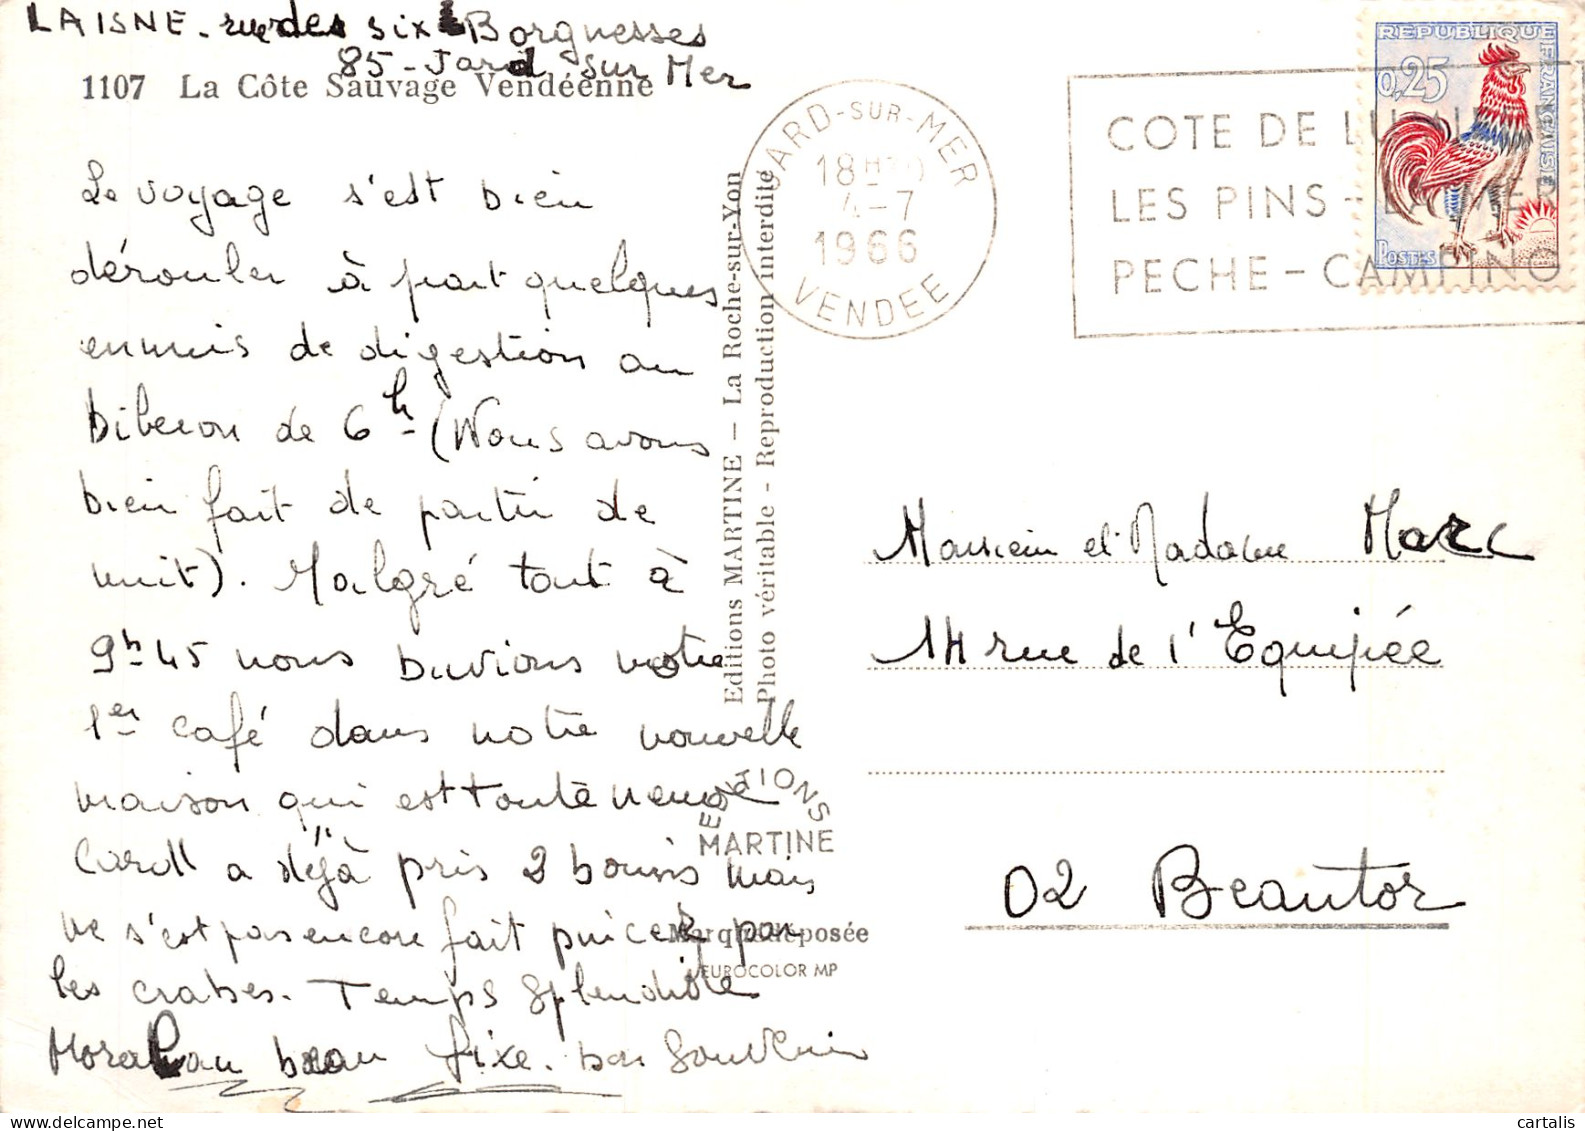 LAISNE - rue des six Borgnesses
85 - Jard sur Mer
1107 La Côte Sauvage Vendéenne
Le voyage s'est bien
dérouler à part quelques
ennuis de digestion au
biberon de 6h (Nous avons
bien fait de partir de
nuit). Malgré tout à
9h 45 nous buvions notre
1er café dans notre nouvelle
maison qui est toute neuve
a déjà pris 2 bains mais
ne s'est pas encore fait pincer par
les crabes. Temps splendide
Moral au beau fixe. bon Souvenir
Editions MARTINE - La Roche-sur-Yon
Photo véritable - Reproduction interdite
EDITIONS
MARTINE
Marque déposée
EUROCOLOR MP
JARD-SUR-MER
18H
4-7
1966
VENDEE
COTE DE LUMIERE
LES PINS - LA MER
PECHE - CAMPING
REPUBLIQUE FRANÇAISE
0,25
POSTES
Monsieur et Madame Marc
14 rue de l'Equipée
02 Beautor
cartalis